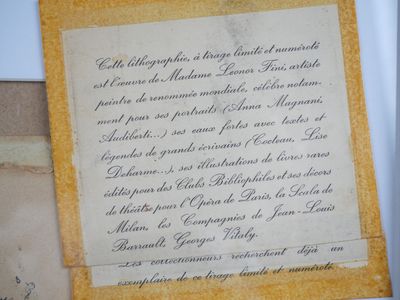 Cette lithographie, à tirage limité et numéroté
est l'œuvre de Madame Leonor Fini, artiste
peintre de renommée mondiale, célèbre notam-
ment pour ses portraits (Anna Magnani,
Audiberti...) ses eaux fortes avec textes et
légendes de grands écrivains (Cocteau, Lise
Deharme...), ses illustrations de livres rares
édités pour des Clubs Bibliophiles et ses décors
de théâtre pour l'Opéra de Paris, la Scala de
Milan, les Compagnies de Jean-Louis
Barrault, Georges Vitaly.
Les collectionneurs recherchent déjà un
exemplaire de ce tirage limité et numéroté.